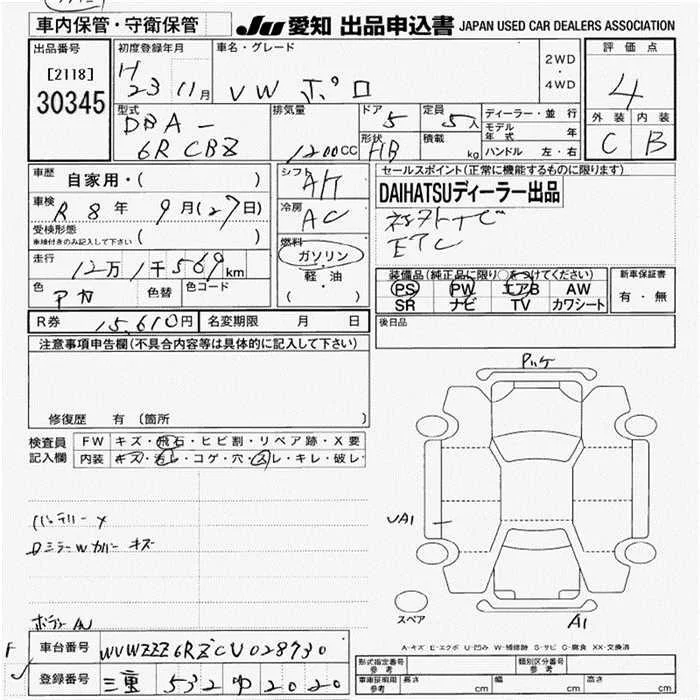 車内保管・守衛保管
JU 愛知 出品申込書 JAPAN USED CAR DEALERS ASSOCIATION
出品番号
[2118]
30345
初度登録年月
H 23 11月
車名・グレード
VW ポロ
2WD
・
4WD
評価点
4
外装 内装
C B
型式
DBA-
6RCBZ
排気量
1200cc
ドア 5
形状 HB
定員 5人
積載 kg
ディーラー・並行
モデル年式 年
ハンドル 左・右
車歴 自家用・( )
車検 R8年 9月(27日)
受検形態
車検付きのみ記入して下さい ( )
走行 12万1千569km
色 アカ 色替 色コード
シフト AT
冷房 AC
燃料
ガソリン・
軽・油
( )
セールスポイント(正常に機能するものに限ります)
DAIHATSUディーラー出品
ETC
装備品(純正品に限り○をつけてください)
PS PW エアB AW
SR ナビ TV カワシート
新車保証書
有・無
R券 15,610円 名変期限 月 日
後日品
注意事項申告欄(不具合内容等は具体的に記入して下さい)
修復歴 有 (箇所 )
検査員
記入欄
FW キズ・飛石・ヒビ割・リペア跡・X要
内装 キズ・汚レ・コゲ・穴・スレ・キレ・破レ・
バッテリー X
DミラーWカバー キズ
UA1
A1
スペア
A-キズ E-エクボ U-凹み W-補修跡 S-サビ C-腐食 XX-交換済
F
車台番号 WVWZZZ6RZCU028930
登録番号 三重 532 ゆ 2020
形式指定番号
参考
類別区分番号
参考
車庫証明用
参考
長さ cm 幅 cm 高さ cm